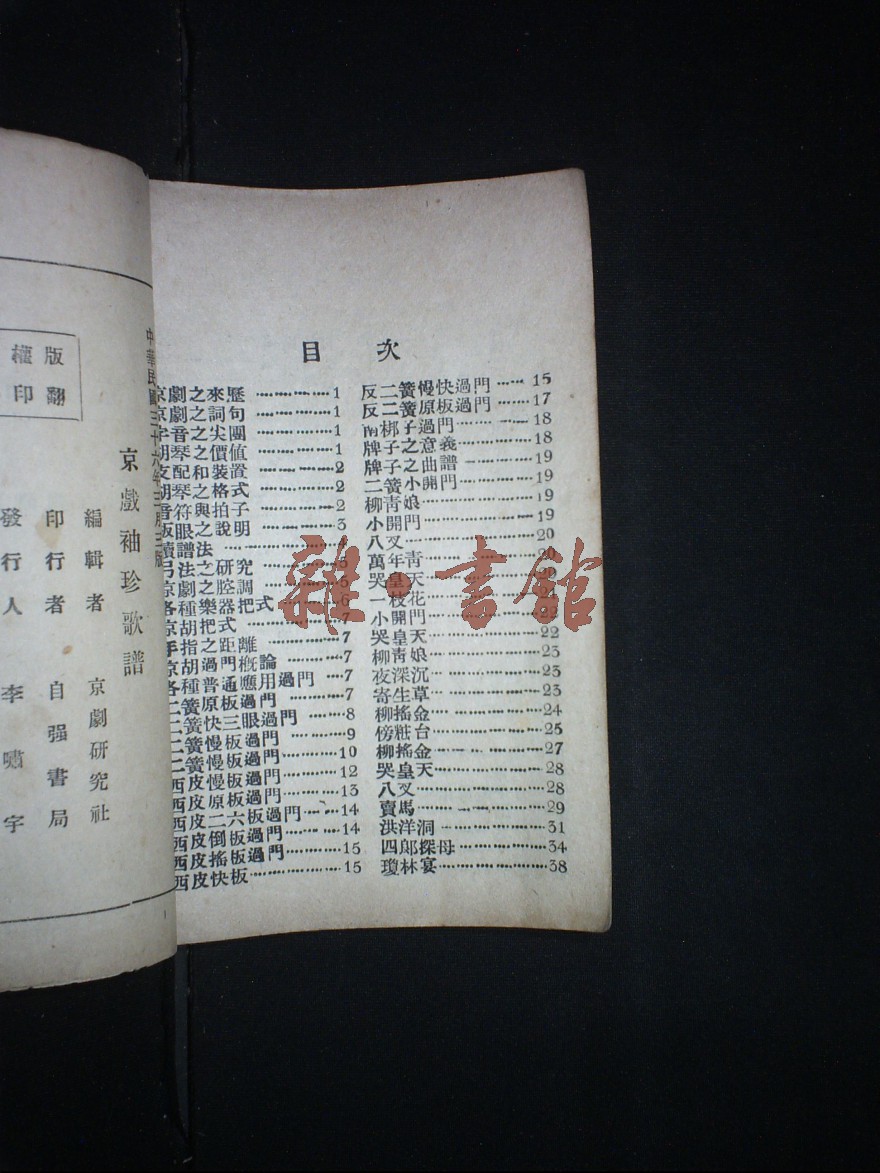 目 次
京劇之來歷 1
京劇之詞句 1
字音之尖團 1
胡琴之價值 1
支配和裝置 2
胡琴之格式 2
音符與拍子 2
板眼之說明 3
讀譜法 4
弓法之研究 5
京劇之腔調 5
各種樂器把式 6
京胡把式 7
手指之距離 7
京胡過門概論 7
各種普通應用過門 7
二簧原板過門 7
二簧快三眼過門 8
二簧慢板過門 9
二簧慢板過門 10
西皮慢板過門 12
西皮原板過門 13
西皮二六板過門 14
西皮倒板過門 14
西皮搖板過門 15
西皮快板 15
反二簧慢快過門 15
反二簧原板過門 17
南梆子過門 18
牌子之意義 18
牌子之曲譜 19
二簧小開門 19
柳青娘 19
小開門 19
八叉 20
萬年青 20
哭皇天
一枝花
小開門 22
哭皇天 22
柳青娘 23
夜深沉 23
寄生草 23
柳搖金 24
傍粧台 25
柳搖金 27
哭皇天 28
八叉 28
賣馬 29
洪洋洞 31
四郎探母 34
瓊林宴 38
中華民國三十六年三版
京戲袖珍歌譜
編輯者 京劇研究社
印行者 自强書局
發行人 李嘯宇
版權
翻印
雜·書館